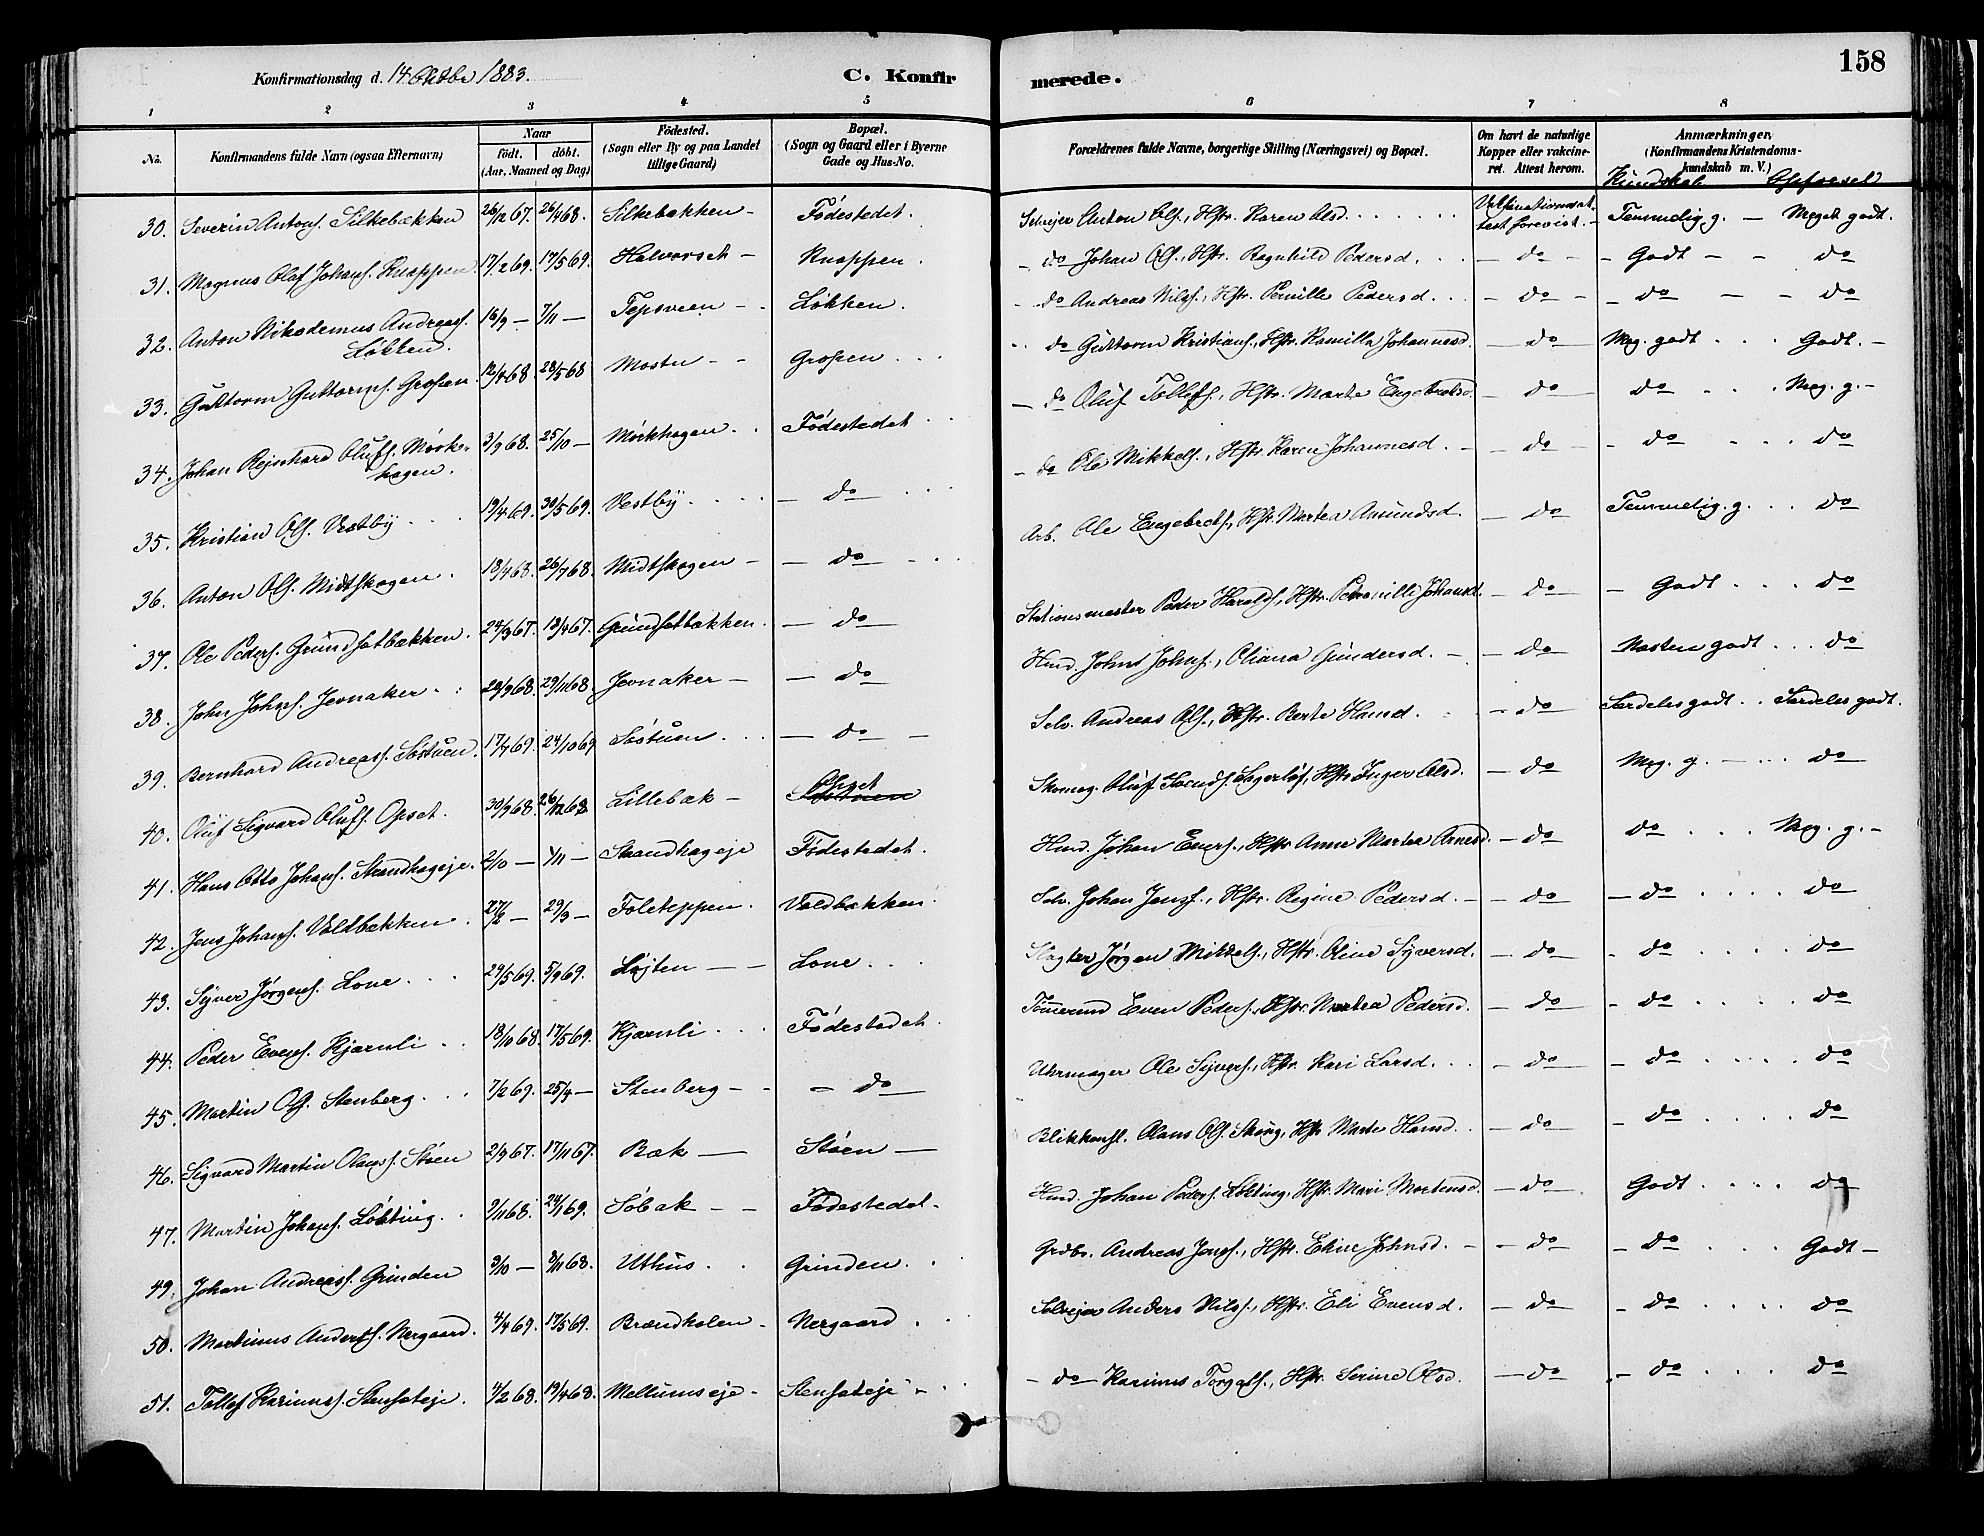 158
Konfirmationsdag d. 14 Oktbr 1883.
C. Konfirmerede.
1 2 3 4 5 6 7 8
No. | Konfirmandens fulde Navn (ogsaa Efternavn) | Naar født. | døbt. (Aar, Maaned og Dag) | Fødested. (Sogn eller By og paa Landet tillige Gaard) | Bopæl. (Sogn og Gaard eller i Byerne Gade og Hus-No. | Forældrenes fulde Navne, borgerlige Stilling (Næringsvei) og Bopæl. | Om havt de naturlige Kopper eller vakcineret. Attest herom. | Anmærkninger, (Konfirmandens Kristendomskundskab m. V.)
Kundskab Opførsel
30. Severin Antons. Silkebækken 26/12 67. 26/4 68. Silkebækken - Fødestedet. Selvejer Anton Ols., Hstr. Karen Olsd. Vakcinationsattest forevist. - Temmelig g. - Meget godt.
31. Magnus Olaf Johans. Knappen 17/2 69. 17/5 69. Halvorset - Knappen. - do Johan Ols., Hstr. Ragnhild Pedersd. - do - Godt - do
32. Anton Nikodemus Andreas. Løkken. 16/9 - 7/11 - Løkken. - do Andreas Nilss., Hstr. Pernille Pedersd. - do - - do - do
33. Guttorm Guttorms. Grosen 12/4 68. 28/5 68 Mostu - - Grosen do Guttorm Kristians., Hstr. Kamilla Johannesd. - do Meg. godt Godt. -
34. Johan Rejnhard Olufs. Mørkhagen. 3/9 68. 25/10 - Mørkhagen Fødestedet - do Oluf Tollefs., Hstr. Marte Engebretsd. - do do Meg. g. -
35. Kristian Ols. Vestby 19/4 69. 30/5 69. Vestby - do - do Ole Mikkels., Hstr. Karen Johannesd. - do - do do
36. Anton Ols. Midtskogen. 18/4 68. 26/7 68. Midtskogen - - do Arb. Ole Engebrets., Hstr. Martea Amundsd. - do Temmelig. g. do
37. Ole Peders. Grundsetbækken. 24/3 67. 19/4 67. Grundsetbækken. - do Stationsmester Peder Haralds., Hstr. Pernille Johansd. - do - Godt do
38. John Johns. Jevnaker 28/9 68. 29/11 68. Jevnaker - - do Husd. Johns Johns., Oliana Gundersd. - - do Næsten godt do
39. Bernhard Andreass. Søstuen. 17/7 69. 24/10 69 Søstuen - do - Selv. Andreas Ols., Hstr. Berte Hansd. - do Særdeles godt Særdeles godt.
40. Oluf Sigvard Olufs. Opset. 30/9 68. 26/12 68. Lillebæk - Opset Skomag. Oluf Svends. Lagerløs, Hstr Inger Olsd. - do Meg. g. - do
41. Hans Otto Johans. Strandhageje. 2/10 - 1/11 - Strandhageje Fødestedet. Husd. Johan Evers., Hstr Anne Martea Arnesd. - do do Meg. g. -
42. Jens Johans. Voldbækken 27/2 - 29/3 - Foleteppen. Voldbækken. Selv. Johan Jens., Hstr. Regine Pedersd. - - do - do do
43. Syver Jørgens. Lone 29/5 69. 5/9 69. Løjten - - Lone Slagter Jørgen Mikkels., Hstr. Oline Syversd. - do - do do
44. Peder Evens. Kjærnli 18/10 68. 17/5 69. Kjærnli Fødestedet. Tømmermd Even Peders., Hstr. Martea Pedersd. - do - do do
45. Martin Ols. Stenberg. 7/2 69. 25/4 - Stenberg - - do Uhrmager Ole Syvers., Hstr. Kari Larsd. - do - do do
46. Sigvard Martin Olauss. Støen 2/9 67. 17/11 67. Bæk - Støen - Blikkensl. Olaus Ols. Skaug, Hstr Marte Hansd. - do - do do
47. Martin Johans. Løbting. 2/11 68. 24/1 69. Søbak - - Fødestedet. Husd. Johan Peders. Løbting, Hstr. Mari Mortensd. - do Godt do
49. Johan Andreass. Grinden 3/10 - 8/11 68. Uthus Grinden. Grdbr. Andreas Jens., Hstr. Eline Johnsd. - - do - do Godt -
50. Martinus Anderss. Nergaard. 4/4 69. 17/5 69. Brændholen - Nergaard Selvejer Anders Nilss., Hstr. Eli Evensd. - do - do do
51. Tollef Karinuss. Stensateje. 4/2 68. 19/4 68. Mellumseje - Stensateje - - do - Karinus Torgals., Hstr. Serine Olsd. - do - do do